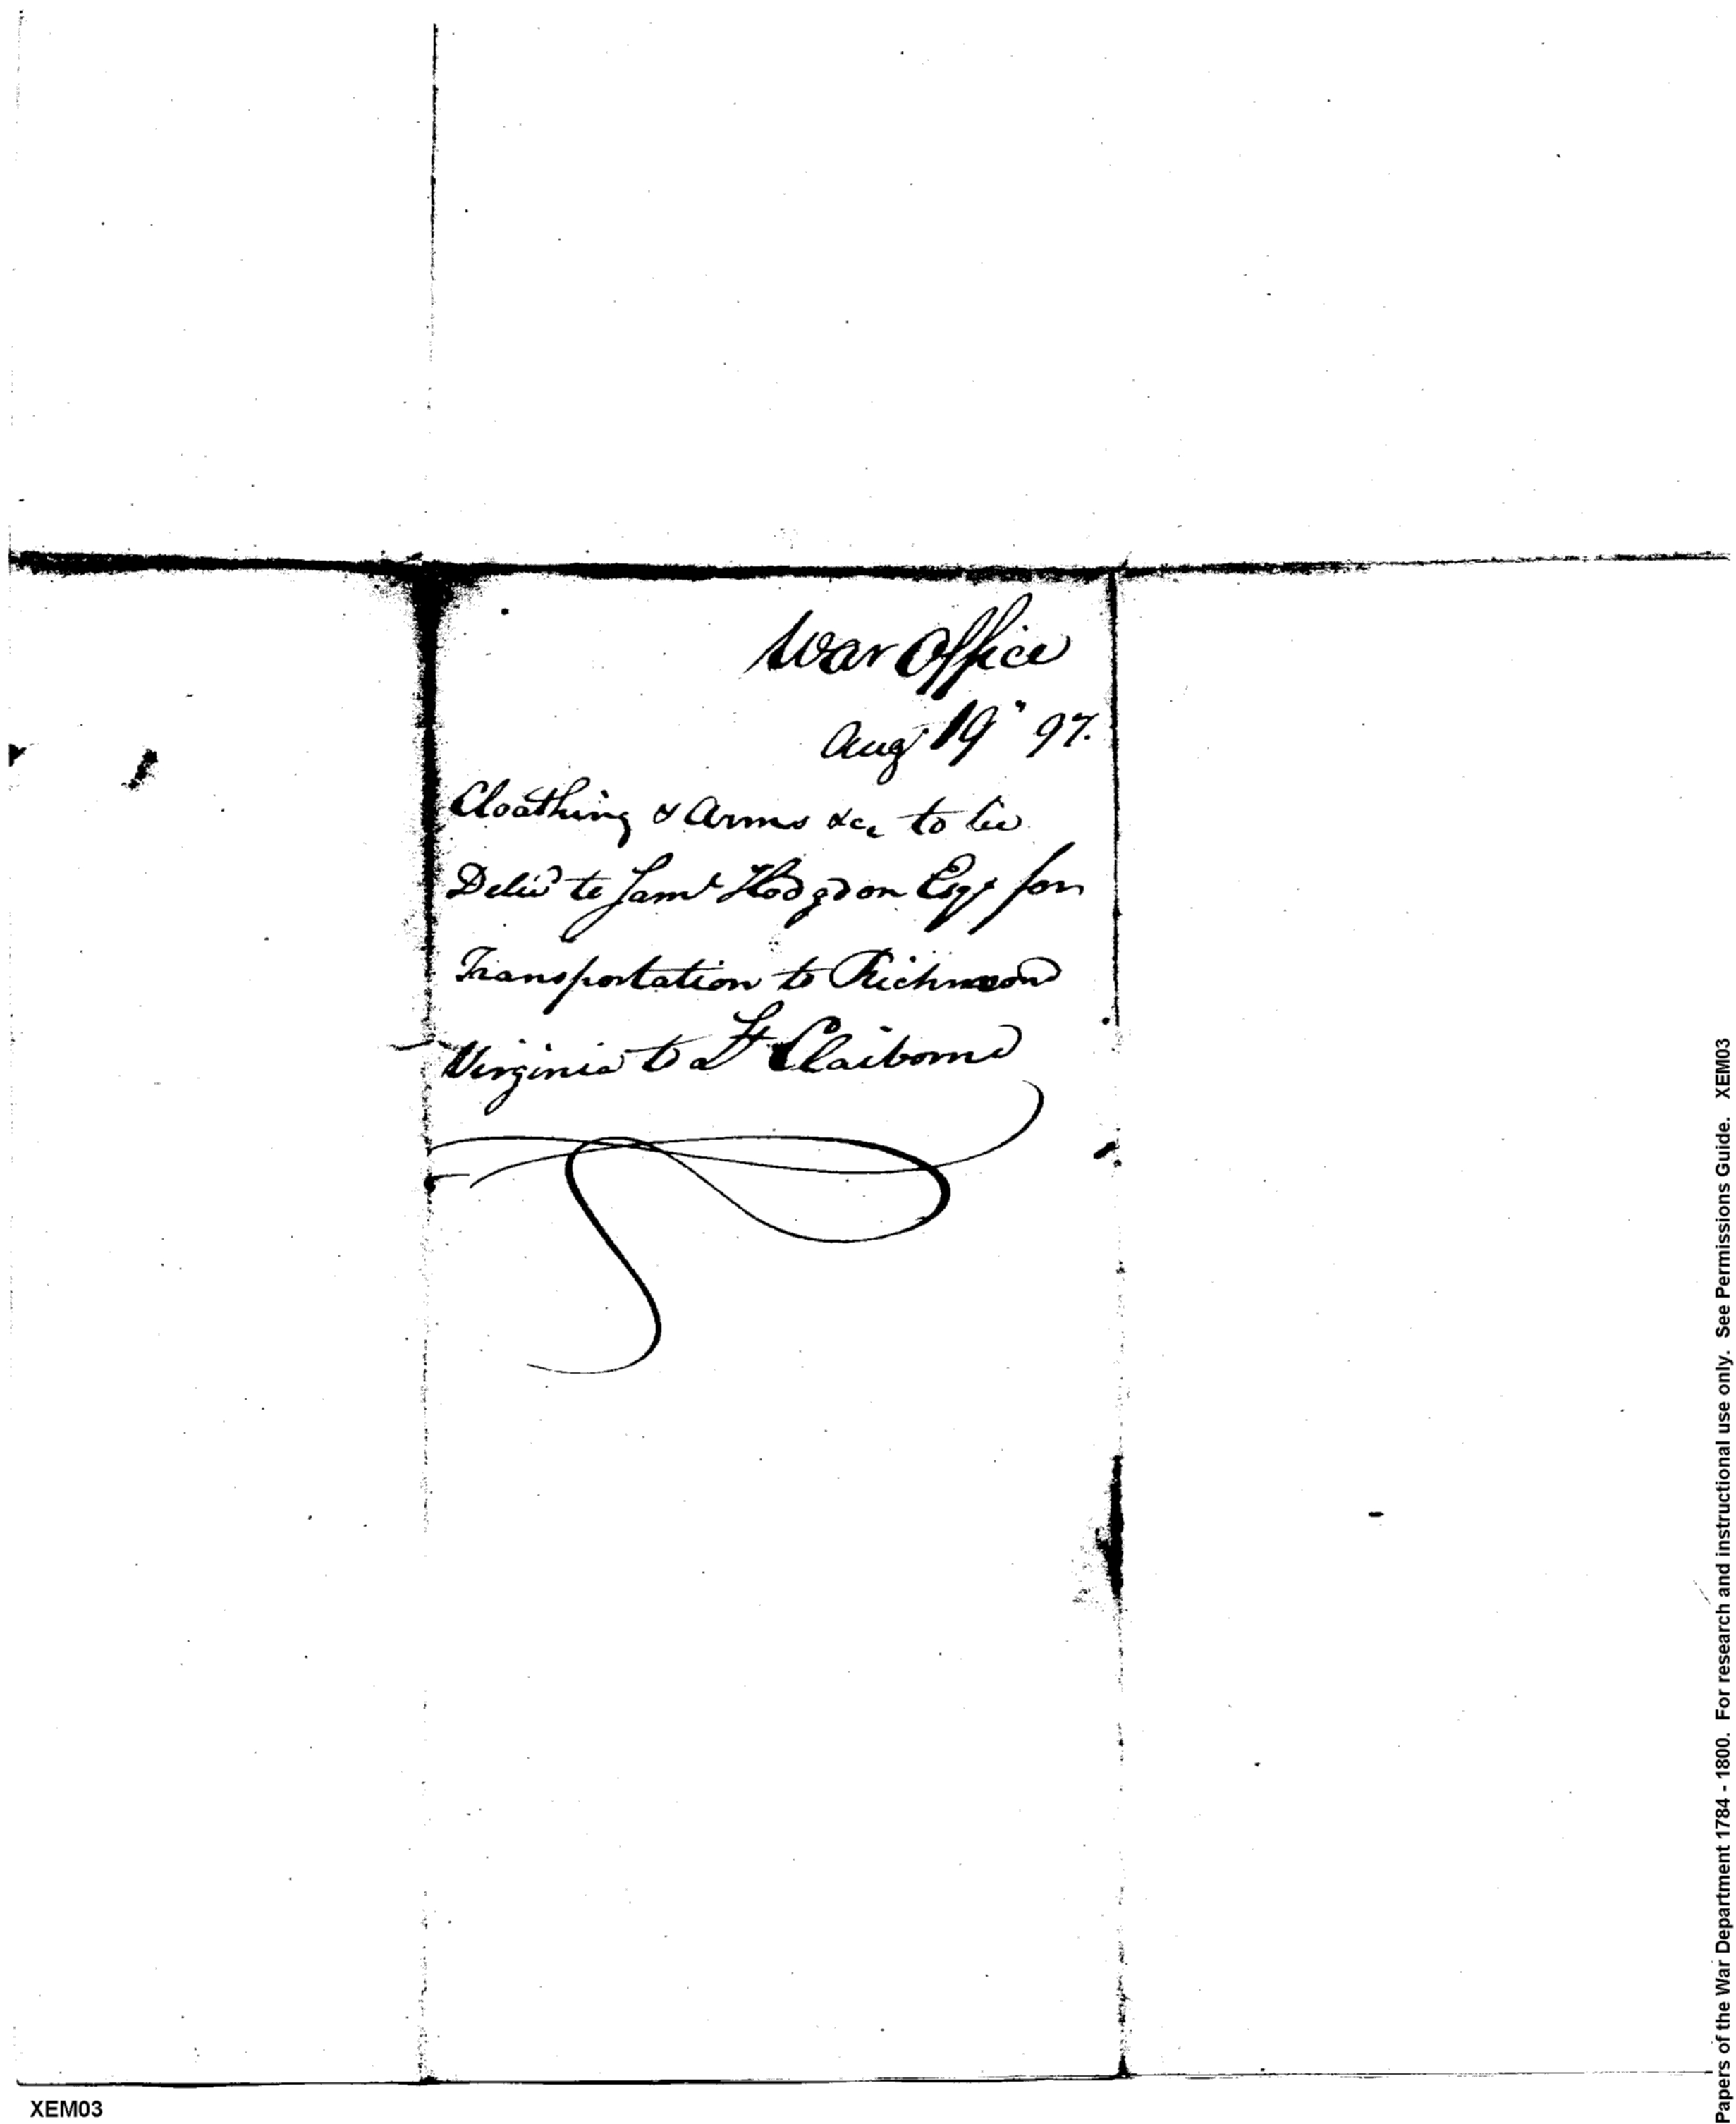 War Office
Aug 19" 97.
Cloathing & Arms &c. to be
Delivd to Saml Hodgdon Esqr for
Transportation to Richmond
Virginia to Lt Claiborne
XEM03
Papers of the War Department 1784 - 1800. For research and instructional use only. See Permissions Guide. XEM03